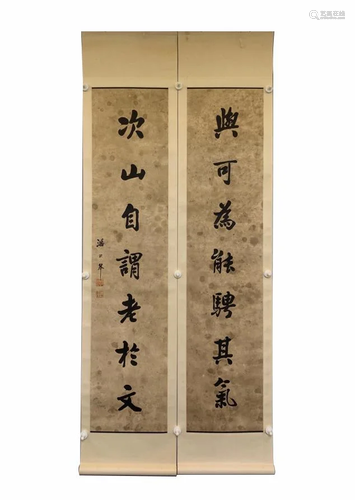 與可為能騁其氣
次山自謂老於文